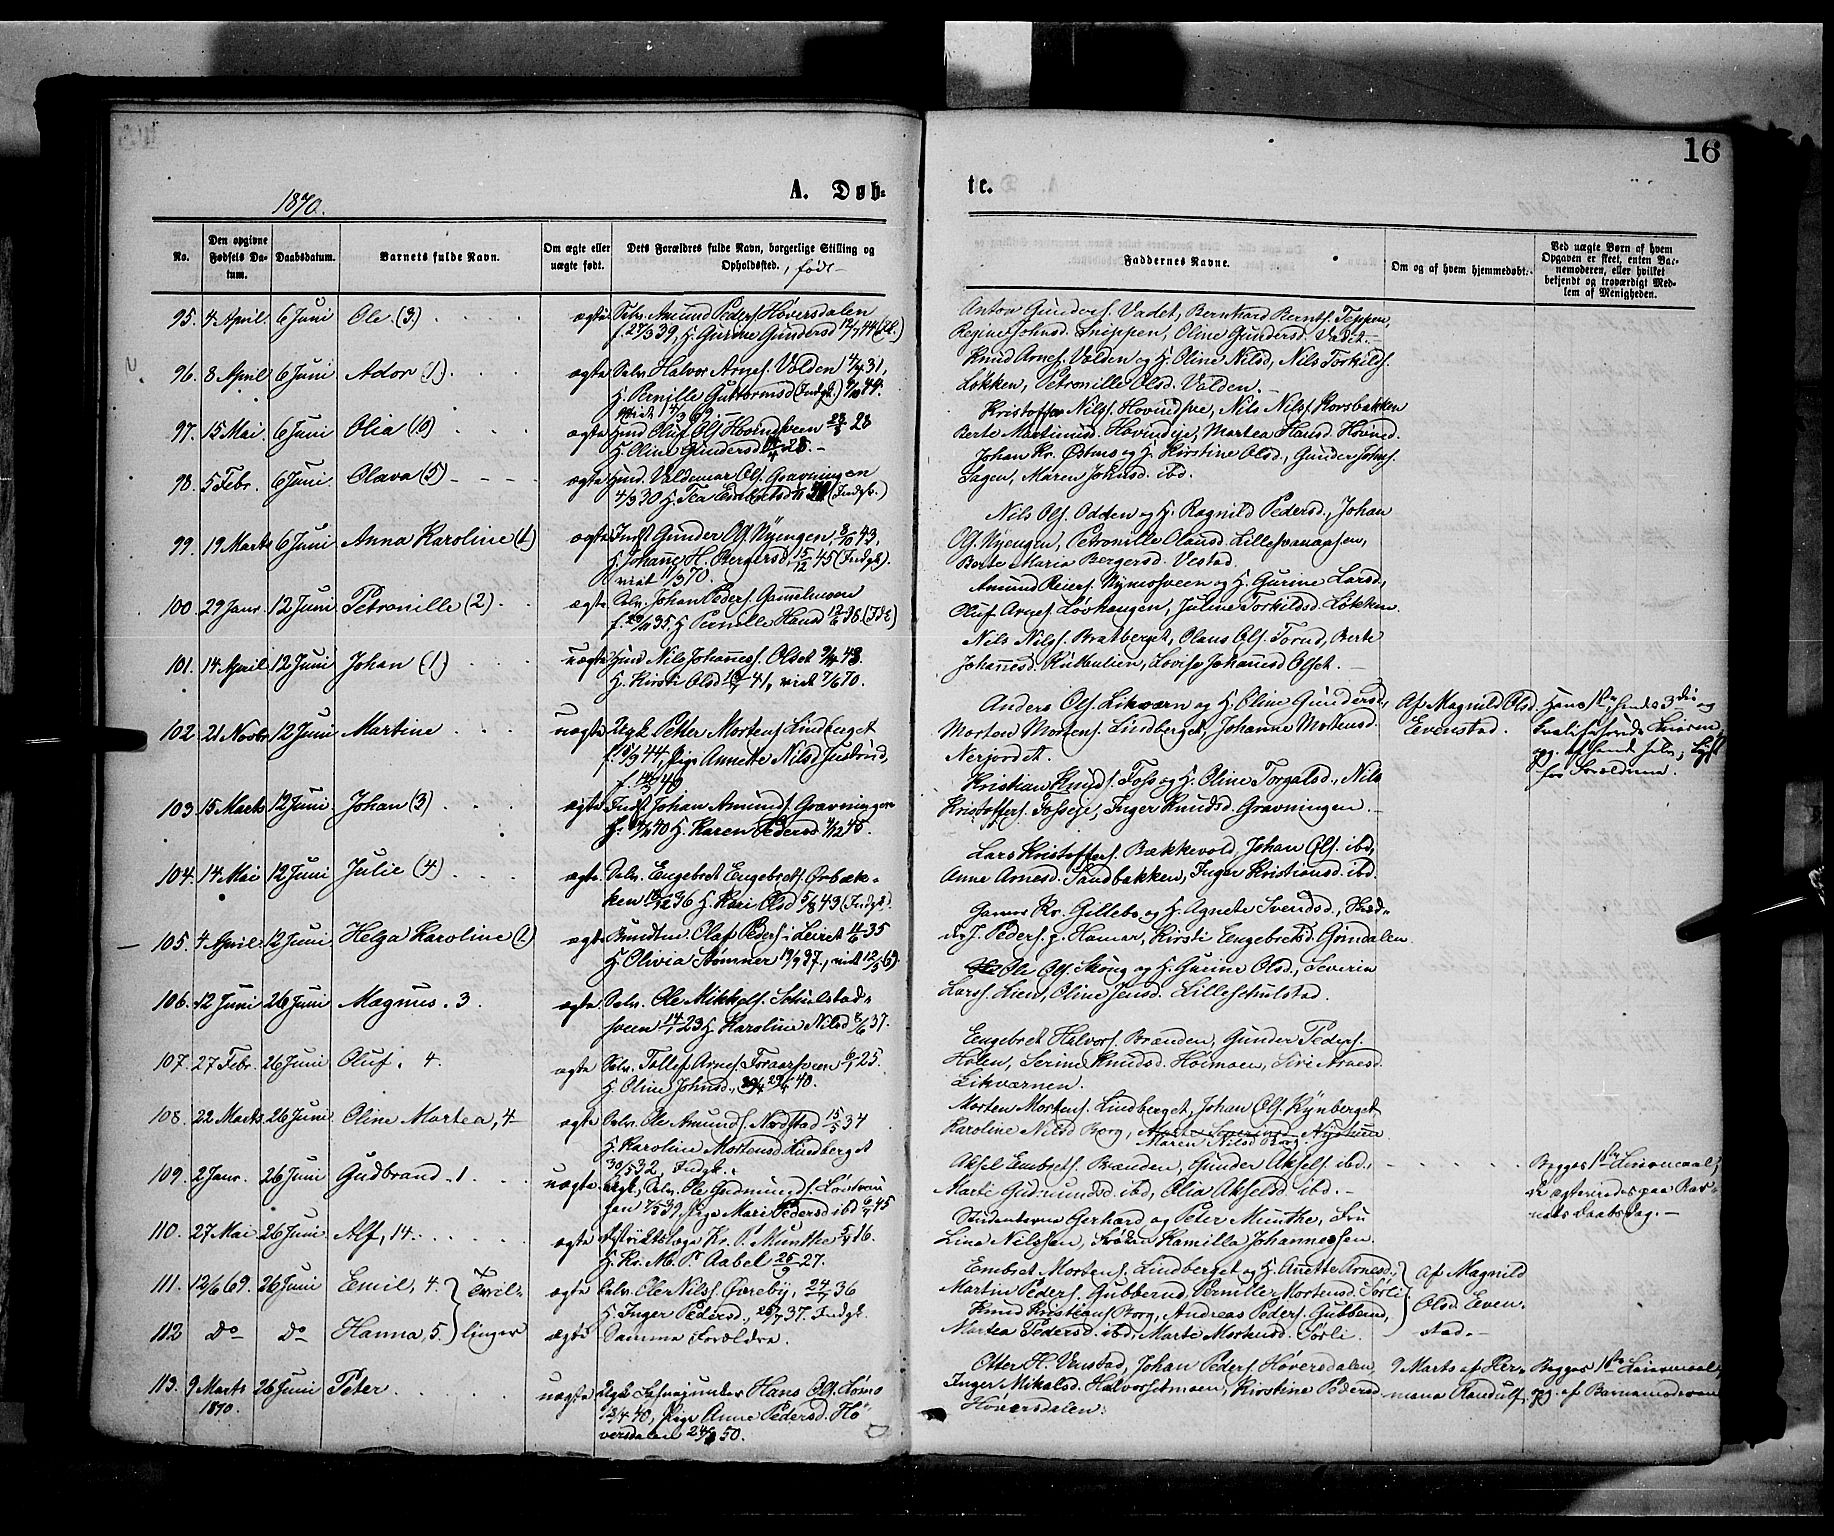 16
1870.
A. Døb-
te.
No.
Den opgivne Fødsels Datum.
Daabsdatum.
Barnets fulde Navn.
Om ægte eller uægte født.
Dets Forældres fulde Navn, borgerlige Stilling og Opholdssted. , født
Faddernes Navne.
Om og af hvem hjemmedøbt.
Ved uægte Børn af hvem Opgaven er skeet, enten Barnemoderen, eller hvilket bekjendt og troværdigt Medlem af Menigheden.
95. 4 April 6 Juni Ole (3) ægte Selv. Amund Peders. Høversdalen
f. 27/3 39, H. Gurine Gundersd
Anton Gunders. Vadet, Bernhard Bernts. Teppen,
Regine Johnsd. Snippen, Oline Gundersd. Vadet.
96. 8 April 6 Juni Ador (1) ægte Selv. Halvor Arnes. Volden 4/4 31,
H. Pernille Guttormsd (Indgk.)
vied 1/3 69.
Knud Arnes. Volden og H. Oline Nilsd, Nils Torkilds.
Løkken, Petronille Olsd. Volden.
97. 15 Mai 6 Juni Olia (10) ægte Hmd Oluf Ols. Hovindsveen 23/3 23
H. Oline Gundersd 14/4 28.
Kristoffer Nils. Hovindsve, Nils Nils. Korsbakken
Berte Martinusd. Hovindeje, Martea Hansd. Hovind.
98. 5 Febr. 6 Juni Olava (5) ægte Hmd. Valdemar Ols. Gravningen
4/9 30 H. Tea Embretsd (Indgk.)
Johan Kr. Østmo og H. Kirstine Olsd, Gunder Johns.
Hagen, Maren Johnsd. ibd.
99. 19 Marts 6 Juni Anna Karoline (1) ægte Indst Gunder Ols. Nyengen, 8/10 43,
H. Johanne H. Bergersd, 15/12 45 (Indgk).
viet 11/3 70.
Nils Ols. Odden og H. Ragnild Pedersd., Johan
Ols. Nyengen, Petronille Olausd. Lillesvanaasen,
Berte Maria Bergersd. Vestad.
100. 29 Janr. 12 Juni Petronille (2) ægte Selv. Johan Peders. Gammelsveen
H. Pernille Hansd
Amund Reiers. Nymosveen og H. Gurine Larsd,
Oluf Arnes. Løvhaugen, Juline Torkildsd. Løkken.
101. 14 April 12 Juni Johan (1) uægte Hmd Nils Johannes. Olset 9/4 48.
H. Kirsti Olsd 41, viet 7/6 70.
Nils Nils. Bratberget, Olaus Ols. Torud, Berte
Johannesd. Kulbulien, Lovise Johannesd Olset.
102. 21 Novbr 12 Juni Martine uægte Ugk. Petter Mortens. Lindberget
44, Pige Annette Nilsd Justrud,
Anders Ols. Likværn og H. Oline Gundersd,
Morten Mortens. Lindberget, Johanne Mortensd.
Nerjordet.
Af Magnild Olsd.
Evenstad.
Hans 1ste, hendes 3die og
for Forældrene.
103. 15 Marts 12 Juni Johan (3) ægte Indst Johan Amunds. Gravningen
40 H. Karen Pedersd. 45.
Kristian Knuds. Foss og H. Oline Torgalsd., Nils
Kristoffers. Fosseje, Inger Knudsd. Gravningen
104. 14 Mai 12 Juni Julie (4) ægte Selv. Engebret Engebrets. Ørbæk-
ken 36 H. Kari Olsd 5/8 43 (Indgk).
Lars Kristoffers. Bækkevold, Johan Ols. ibd,
Anne Arnesd. Sandbakken, Inger Kristiansd. ibd.
105. 4 April 12 Juni Helga Karoline (1) ægte Bundtm. Olaf Peders. i Leiret 11/6 35
H. Olivia Strømner 19/9 37, viet
Gunns Kr. Gillebo og H. Agnete Svendsd.,
J. Peders. f. Hamar, Kirsti Engebretsd. Grindalen.
106. 12 Juni 26 Juni Magnus. 3. ægte Selv. Ole Mikkels. Skulstad-
sveen 14/1 23 H. Karoline Nilsd 8/6 37.
Ole Ols. Skoug og H. Gurine Olsd., Severin
Larss. Lien, Oline Jensd. Lilleskulstad.
107. 27 Febr. 26 Juni Oluf. 4. ægte Selv. Tollef Arnes. Foraarsveen 6/1 25.
H. Oline Johnsd. 29/4 40.
Engebret Halvors. Branden, Gunder Peders.
Holen, Serine Knudsd. Holmoen, Siri Arnesd.
Likværnen.
108. 22 Marts 26 Juni Oline Martea, 4 ægte Selv. Ole Amunds. Nordstad 15/5 34
H. Karoline Mortensd Lindberget
30/5 32, Indgk.
Morten Mortens. Lindberget, Johan Ols. Rynberget
Karoline Nilsd Borg, Maren Nilsd Borg.
109. 2 Janr. 26 Juni Gudbrand. 1 uægte Ugk, Selv. Ole Gudmunds. Løvsvan-
39 Pige Mari Pedersd ibd 45
Aksel Embrets. Branden, Gunder Aksels. ibd.,
Marte Gudmundsd. ibd, Olia Akselsd. ibd.
Begges 1ste Leiermaal;
de ægteviedes paa Bar-
nets Daabsdag.
110. 27 Mai 26 Juni Alf, 14. ægte Distriktslæge Kr. P. Munthe 16.
H. Kr. M. P. Aabel 25/9 27.
Studenterne Gerhard og Peter Munthe, Fru
Lina Nilssen, Frøken Kamilla Johannessen.
111. 12/6 69. 26 Juni Emil, 4. Tvil- ægte Selv. Ole Nils. Øvreby, 24/7 36
H. Inger Pedersd., 37. Indgk.
Embret Mortens. Lindberget og H. Anette Arnesd.,
Martin Peders. Gubberud Pernille Mortensd. Sørli
Af Magnild
112 Do Do Hanna, 5. linger ægte Samme Forældre.
Knud Kristians Borg, Andreas Peders. Gubberud,
Martea Pedersd. ibd, Marte Mortensd. Sørli.
Olsd. Even-
stad.
113. 9 Marts 1870. 26 Juni Peter uægte Ugk Hans Ols. Lømo
40, Pige Anne Pedersd. Hø-
versdalen 50.
Otter H. Venstad, Johan Peders. Høversdalen
Inger Mikalsd. Halvorsetmoen, Kirstine Pedersd
Høversdalen.
9 Marts af Her-
mana Randulf.
Begges 1ste Leiermaal;
opg. af Barnemoderen